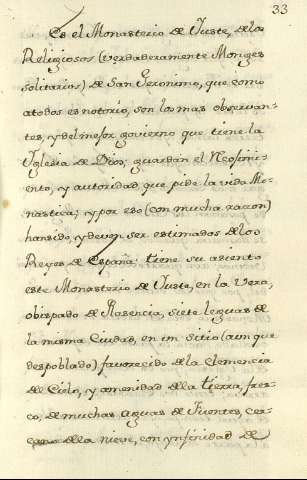 33
Es el Monasterio de Juste, delos
Religiosos (verdaderamente Monges
solitarios) de San Geronimo, que como
atodos es notorio, son los mas observan-
tes, y del mejor govierno que tiene la
Yglesia de Dios; guardan el
ento, y autoridad, que pide la vida Mo-
nastica; y por eso (con mucha razon)
han sido, y deven ser estimados delos
Reyes de España: tiene su asiento
este Monasterio de Juste, en la Vera,
obispado de Plasencia, siete leguas de
la misma Ciudad, en un sitio (aunque
despoblado) favorecido dela Clemencia
del Cielo, y amenidad dela tierra, fres-
co, de muchas aguas de Fuentes, cer-
cano dela nieve, con ynfinidad de